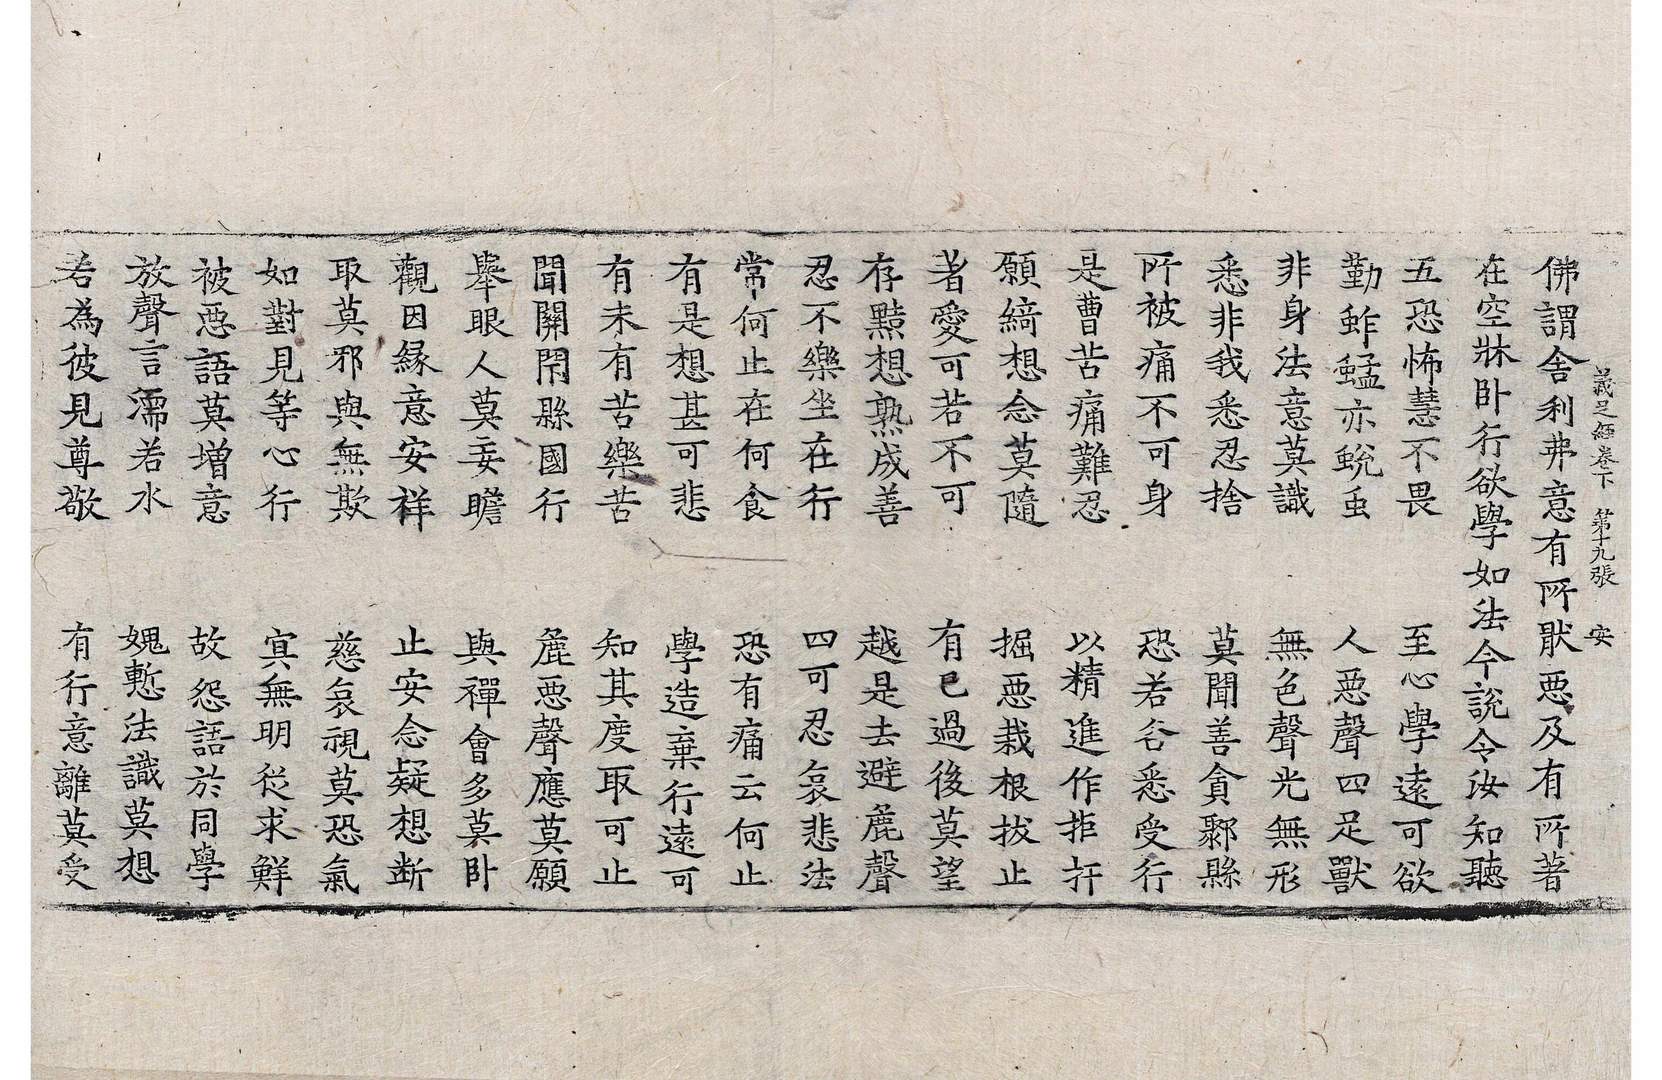 義足經卷下 第十九張 安
佛謂舍利弗意有所猒惡及有所著
在空牀卧行欲學如法今說令汝知聽
五恐怖慧不畏 至心學遠可欲
勤蚱蜢亦蛻䖝 人惡聲四足獸
非身法意莫識 無色聲光無形
悉非我悉忍捨 莫聞善貪鄹縣
所被痛不可身 恐若各悉受行
是曹苦痛難忍 以精進作拒扞
願綺想念莫隨 掘惡栽根拔止
著愛可若不可 有已過後莫望
存黠想熟成善 越是去避麁聲
忍不樂坐在行 四可忍哀悲法
常何止在何食 恐有痛云何止
有是想甚可悲 學造棄行遠可
有未有苦樂苦 知其度取可止
聞關閇縣國行 麁惡聲應莫願
舉眼人莫妄瞻 與禪會多莫卧
觀因緣意安祥 止安念疑想断
取莫邪與無欺 慈哀視莫恐氣
如對見等心行 冥無明從求鮮
被惡語莫增意 故怨語於同學
放聲言濡若水 媿慙法識莫想
若為彼見尊敬 有行意離莫受